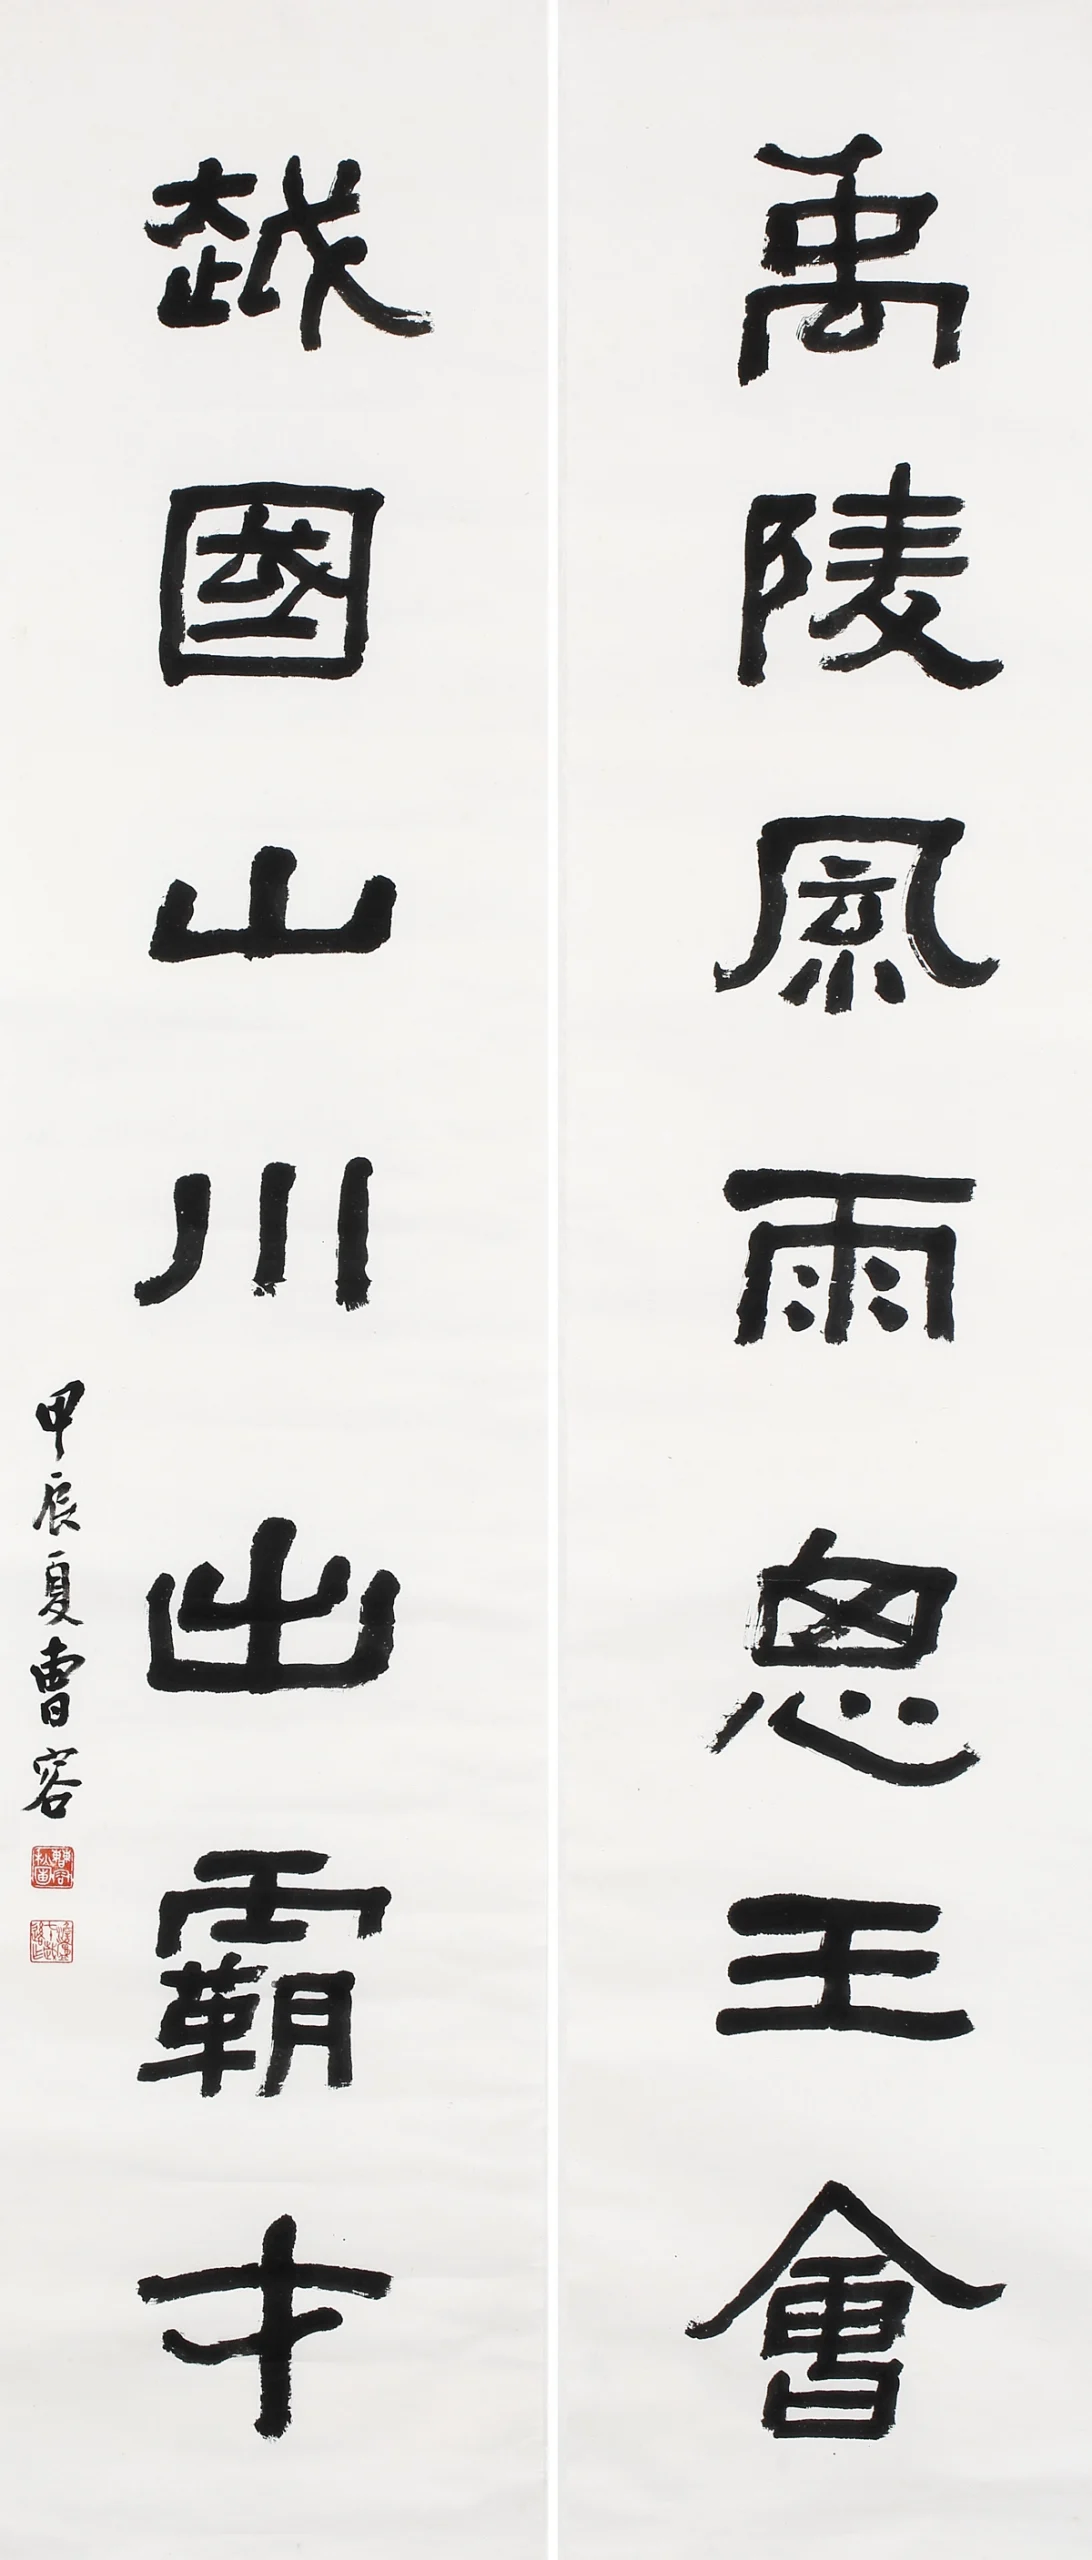 禹陵風雨思王會
越國山川出霸才
甲辰夏曹容